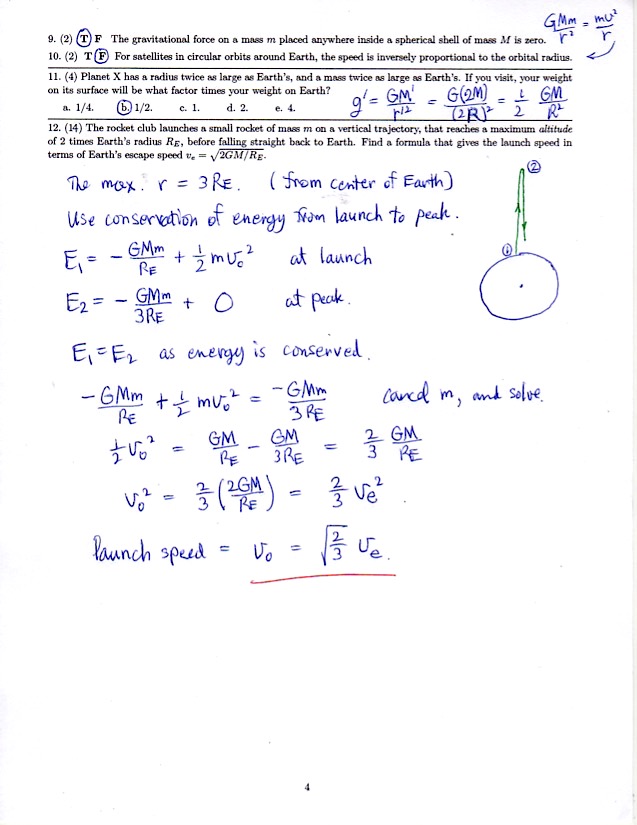 GMm/r² = mv²/r
9. (2) T F The gravitational force on a mass m placed anywhere inside a spherical shell of mass M is zero.
10. (2) T F For satellites in circular orbits around Earth, the speed is inversely proportional to the orbital radius.
11. (4) Planet X has a radius twice as large as Earth's, and a mass twice as large as Earth's. If you visit, your weight
on its surface will be what factor times your weight on Earth?
a. 1/4. b. 1/2. c. 1. d. 2. e. 4.
g' = GM'/r'² = G(2M)/(2R)² = 1/2 GM/R²
12. (14) The rocket club launches a small rocket of mass m on a vertical trajectory, that reaches a maximum altitude
of 2 times Earth's radius R_E, before falling straight back to Earth. Find a formula that gives the launch speed in
terms of Earth's escape speed v_e = √2GM/R_E.
The max. r = 3R_E. (from center of Earth)
②
Use conservation of energy from launch to peak.
①
E₁ = -GMm/R_E + 1/2 mv₀² at launch
E₂ = -GMm/3R_E + 0 at peak.
E₁ = E₂ as energy is conserved.
-GMm/R_E + 1/2 mv₀² = -GMm/3R_E cancel m, and solve.
1/2 v₀² = GM/R_E - GM/3R_E = 2/3 GM/R_E
v₀² = 2/3 (2GM/R_E) = 2/3 v_e²
launch speed = v₀ = √2/3 v_e.
4